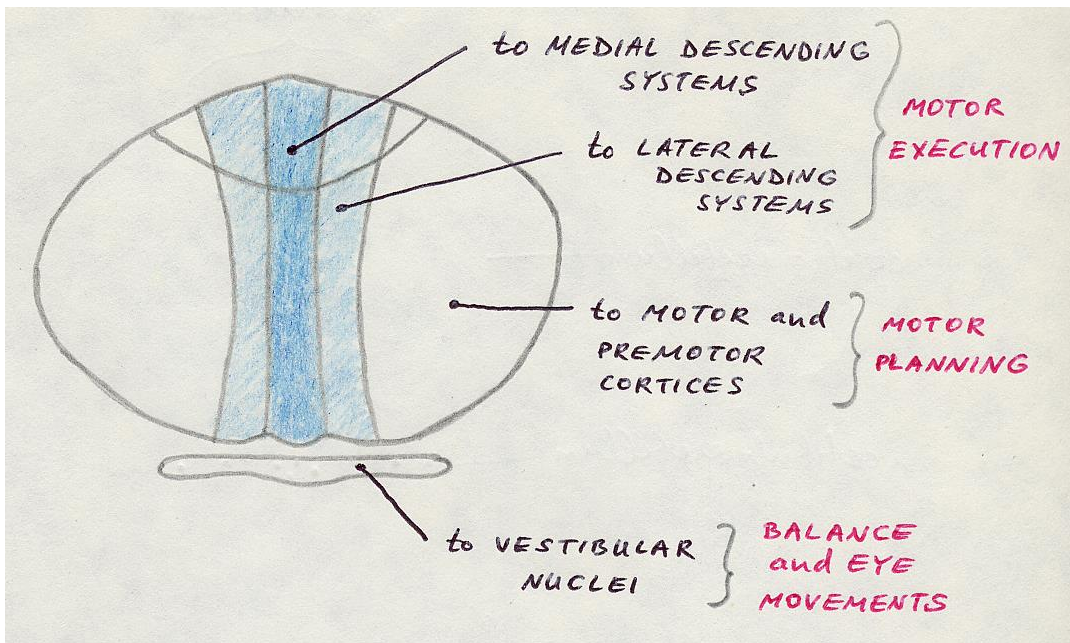 to MEDIAL DESCENDING
SYSTEMS
MOTOR
EXECUTION
to LATERAL
DESCENDING
SYSTEMS
to MOTOR and
PREMOTOR
CORTICES
MOTOR
PLANNING
to VESTIBULAR
NUCLEI
BALANCE
and EYE
MOVEMENTS